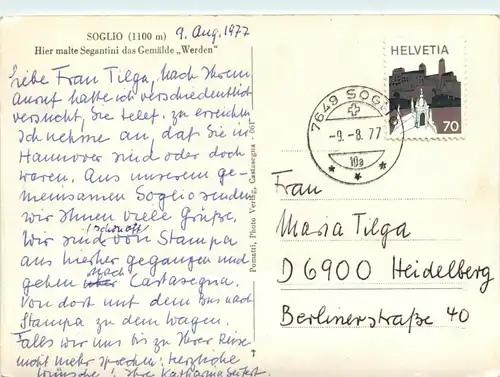 SOGLIO (1100 m)
9. Aug. 1977
Hier malte Segantini das Gemälde „Werden"
Liebe Frau Tilga, nach Ihrem
Anruf hatte ich verschiedentlich
versucht, Sie telef. zu erreichen
Ich nehme an, daß Sie in
Hannover sind oder doch
waren. Aus unserem ge-
meinsamen Soglio senden
wir Ihnen viele Grüße.
Wir sind von Stampa
aus hierher gegangen und
gehen nach Castasegna.
Von dort mit dem Bus nach
Stampa zu dem Wagen.
Falls wir uns bis zu Ihrer Reise
nicht mehr sprechen: herzliche
Wünsche! Ihre Katharina Seifert
Pomatti, Photo Verlag, Castasegna - 061
HELVETIA
70
7649 SOGLIO
-9.-8.77
10a
Frau
Maria Tilga
D 6900 Heidelberg
Berlinerstraße 40